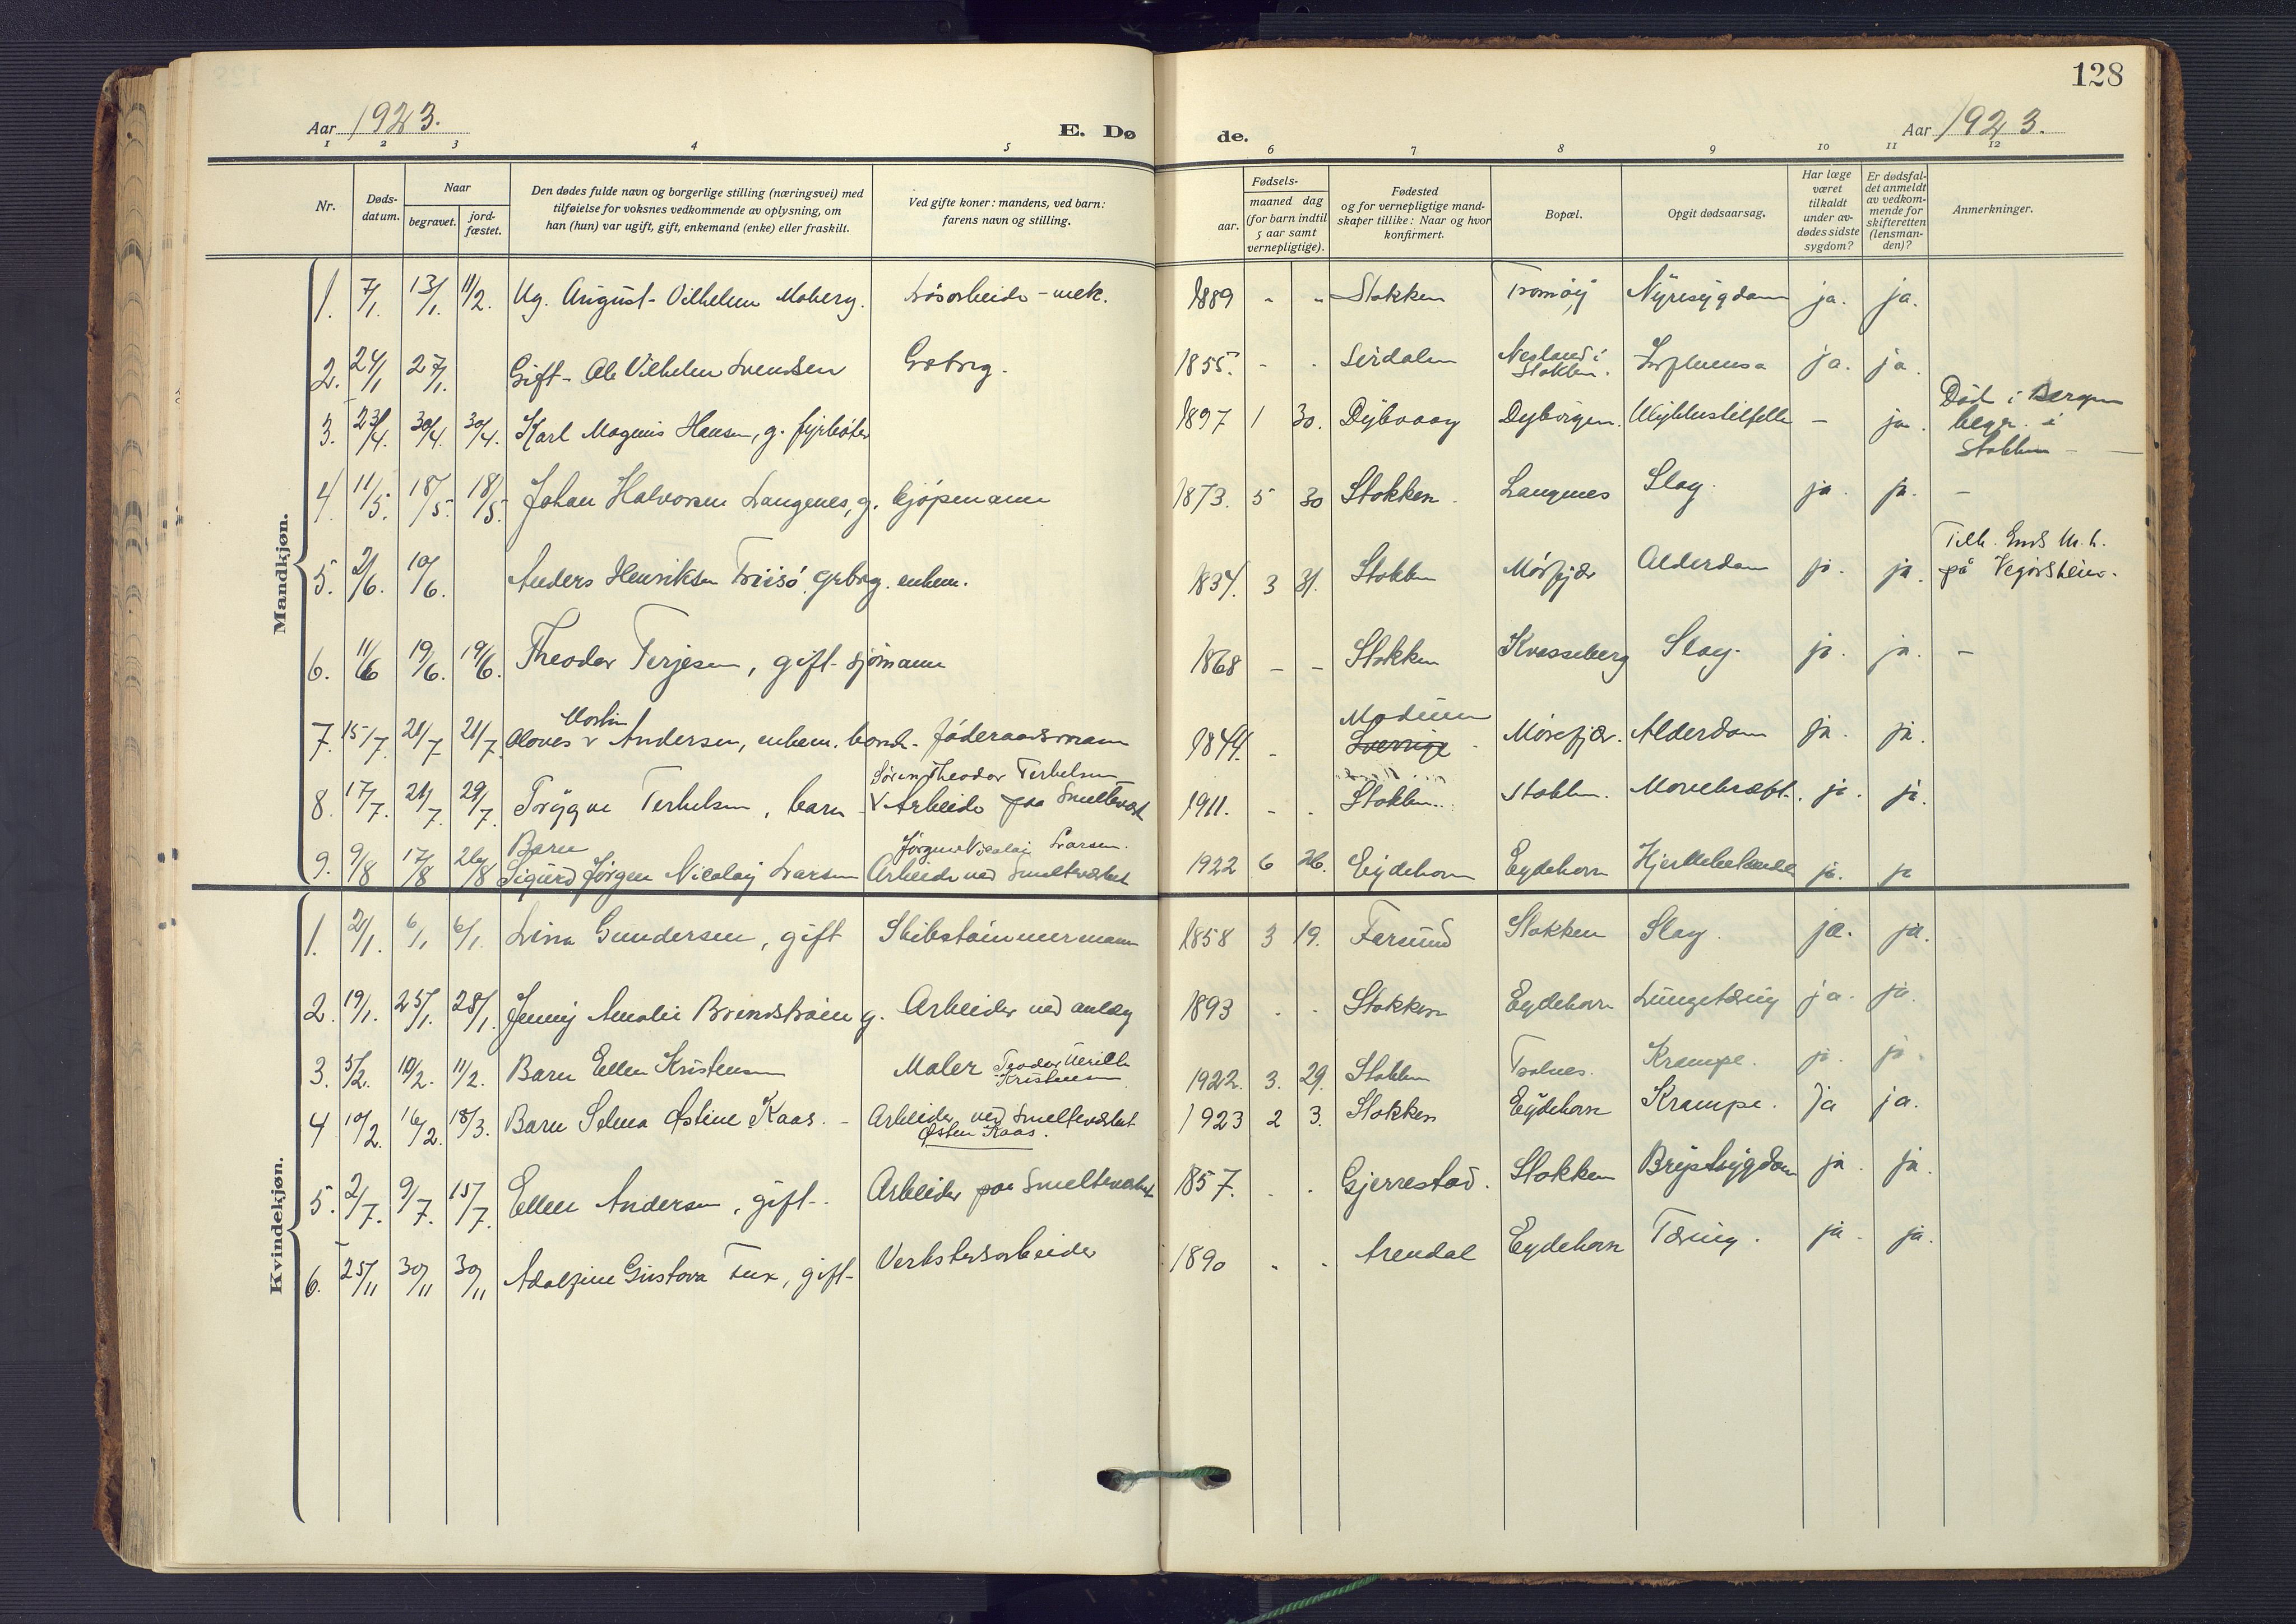 128
Aar 1923.
E. Dø de.
Aar 1923.
1 2 3 4 5 6 7 8 9 10 11 12
Nr.
Døds-
datum.
Naar
begravet.
jord-
fæstet.
Den dødes fulde navn og borgerlige stilling (næringsvei) med
tilføielse for voksnes vedkommende av oplysning, om
han (hun) var ugift, gift, enkemand (enke) eller fraskilt.
Ved gifte koner: mandens, ved barn:
farens navn og stilling.
Fødsels-
aar.
maaned dag
(for barn indtil
5 aar samt
vernepligtige).
Fødested
og for vernepligtige mand-
skaper tillike: Naar og hvor
konfirmert.
Bopæl.
Opgit dødsaarsag.
Har læge
været
tilkaldt
under av-
dødes sidste
sygdom?
Er dødsfal-
det anmeldt
av vedkom-
mende for
skifteretten
(lensman-
den)?
Anmerkninger.
Mandkjøn.
1. 7/1. 13/1. 11/2. Ug. August Vilhelm Moberg. - mek. 1889 - - Stokken Tromøy Nyresygdom ja. ja.
2. 24/1 27/1. Gift - Ole Vilhelm Svendsen Grbrg. 1855. - - Sirdalen Nesland i
Stokken. ja. ja.
3. 23/4. 30/4. 30/4. Karl Magnus Hansen, g. fyrbøter 1897 1 30. Dybvaag Dybvigen. Ulykkestilfelle - ja. Død i Bergen
begr. i
Stokken -
4. 11/5. 18/5. 18/5. Johan Halvorsen Langenes, g. kjøpmann 1873. 5 30 Stokken. Langenes Slag. ja. ja. -
5. 2/6. 10/6. Anders Henriksen grbrg. enkem. 1834. 3 31. Stokken Mørfjær Alderdom ja. ja. Tilh. M. h.
på Vegårsheien.
6. 11/6 19/6. 19/6. Theodor Terjesen, gift sjømann 1868 - - Stokken Kvasseberg Slag. ja. ja. -
Martin
7. 15/7. 21/7 21/7. Aloves v Andersen, enkem. bonde. føderaadsmann 1844. - Modum
Sverrige. Mørefjær. Alderdom ja. ja.
Søren Theodor Terkelsen
8. 17/7. 21/7. 29/7. Trygve Terkelsen, barn v Arbeider paa Smelteverk 1911. - - Stokken. Stokken. ja. ja.
Barn Jørgen Nicolay Larsen.
9. 9/8 17/8 26/8 Sigurd Jørgen Nicolay Larsen Arbeider ved Smelteverket 1922 6 26. Eydehavn Eydehavn ja. ja
Kvindekjøn.
1. 2/1. 6/1 6/1. Lina Gundersen, gift Skibstømmermann 1858 3 19. Farsund Stokken Slag. ja. ja.
2. 19/1. 25/1. 28/1. Jenny Amalie g. Arbeider ved anlæg 1893 - - Stokken Eydehavn Lungetæring ja. ja.
3. 5/2. 10/2. 11/2. Barn Ellen Kristensen Maler Teodor
Kristensen 1922. 3. 29. Stokken Krampe. ja. ja.
4 10/2. 16/2. 18/3. Barn Selma Østine Kaas. - Arbeider ved Smelteverket
Østen Kaas. 1923 2 3. Stokken Eydehavn Krampe. Ja ja.
5. 2/7. 9/7. 15/7. Ellen Andersen, gift. Arbeider paa Smelteverket 1857. - - Gjerrestad. Stokken Brystsygdom ja. ja.
6. 25/11 30/11 30/11 Adolfine Gustava Tux, gift - Verkstedsarbeider 1890 - - Arendal Eydehavn Tæring. ja. ja.